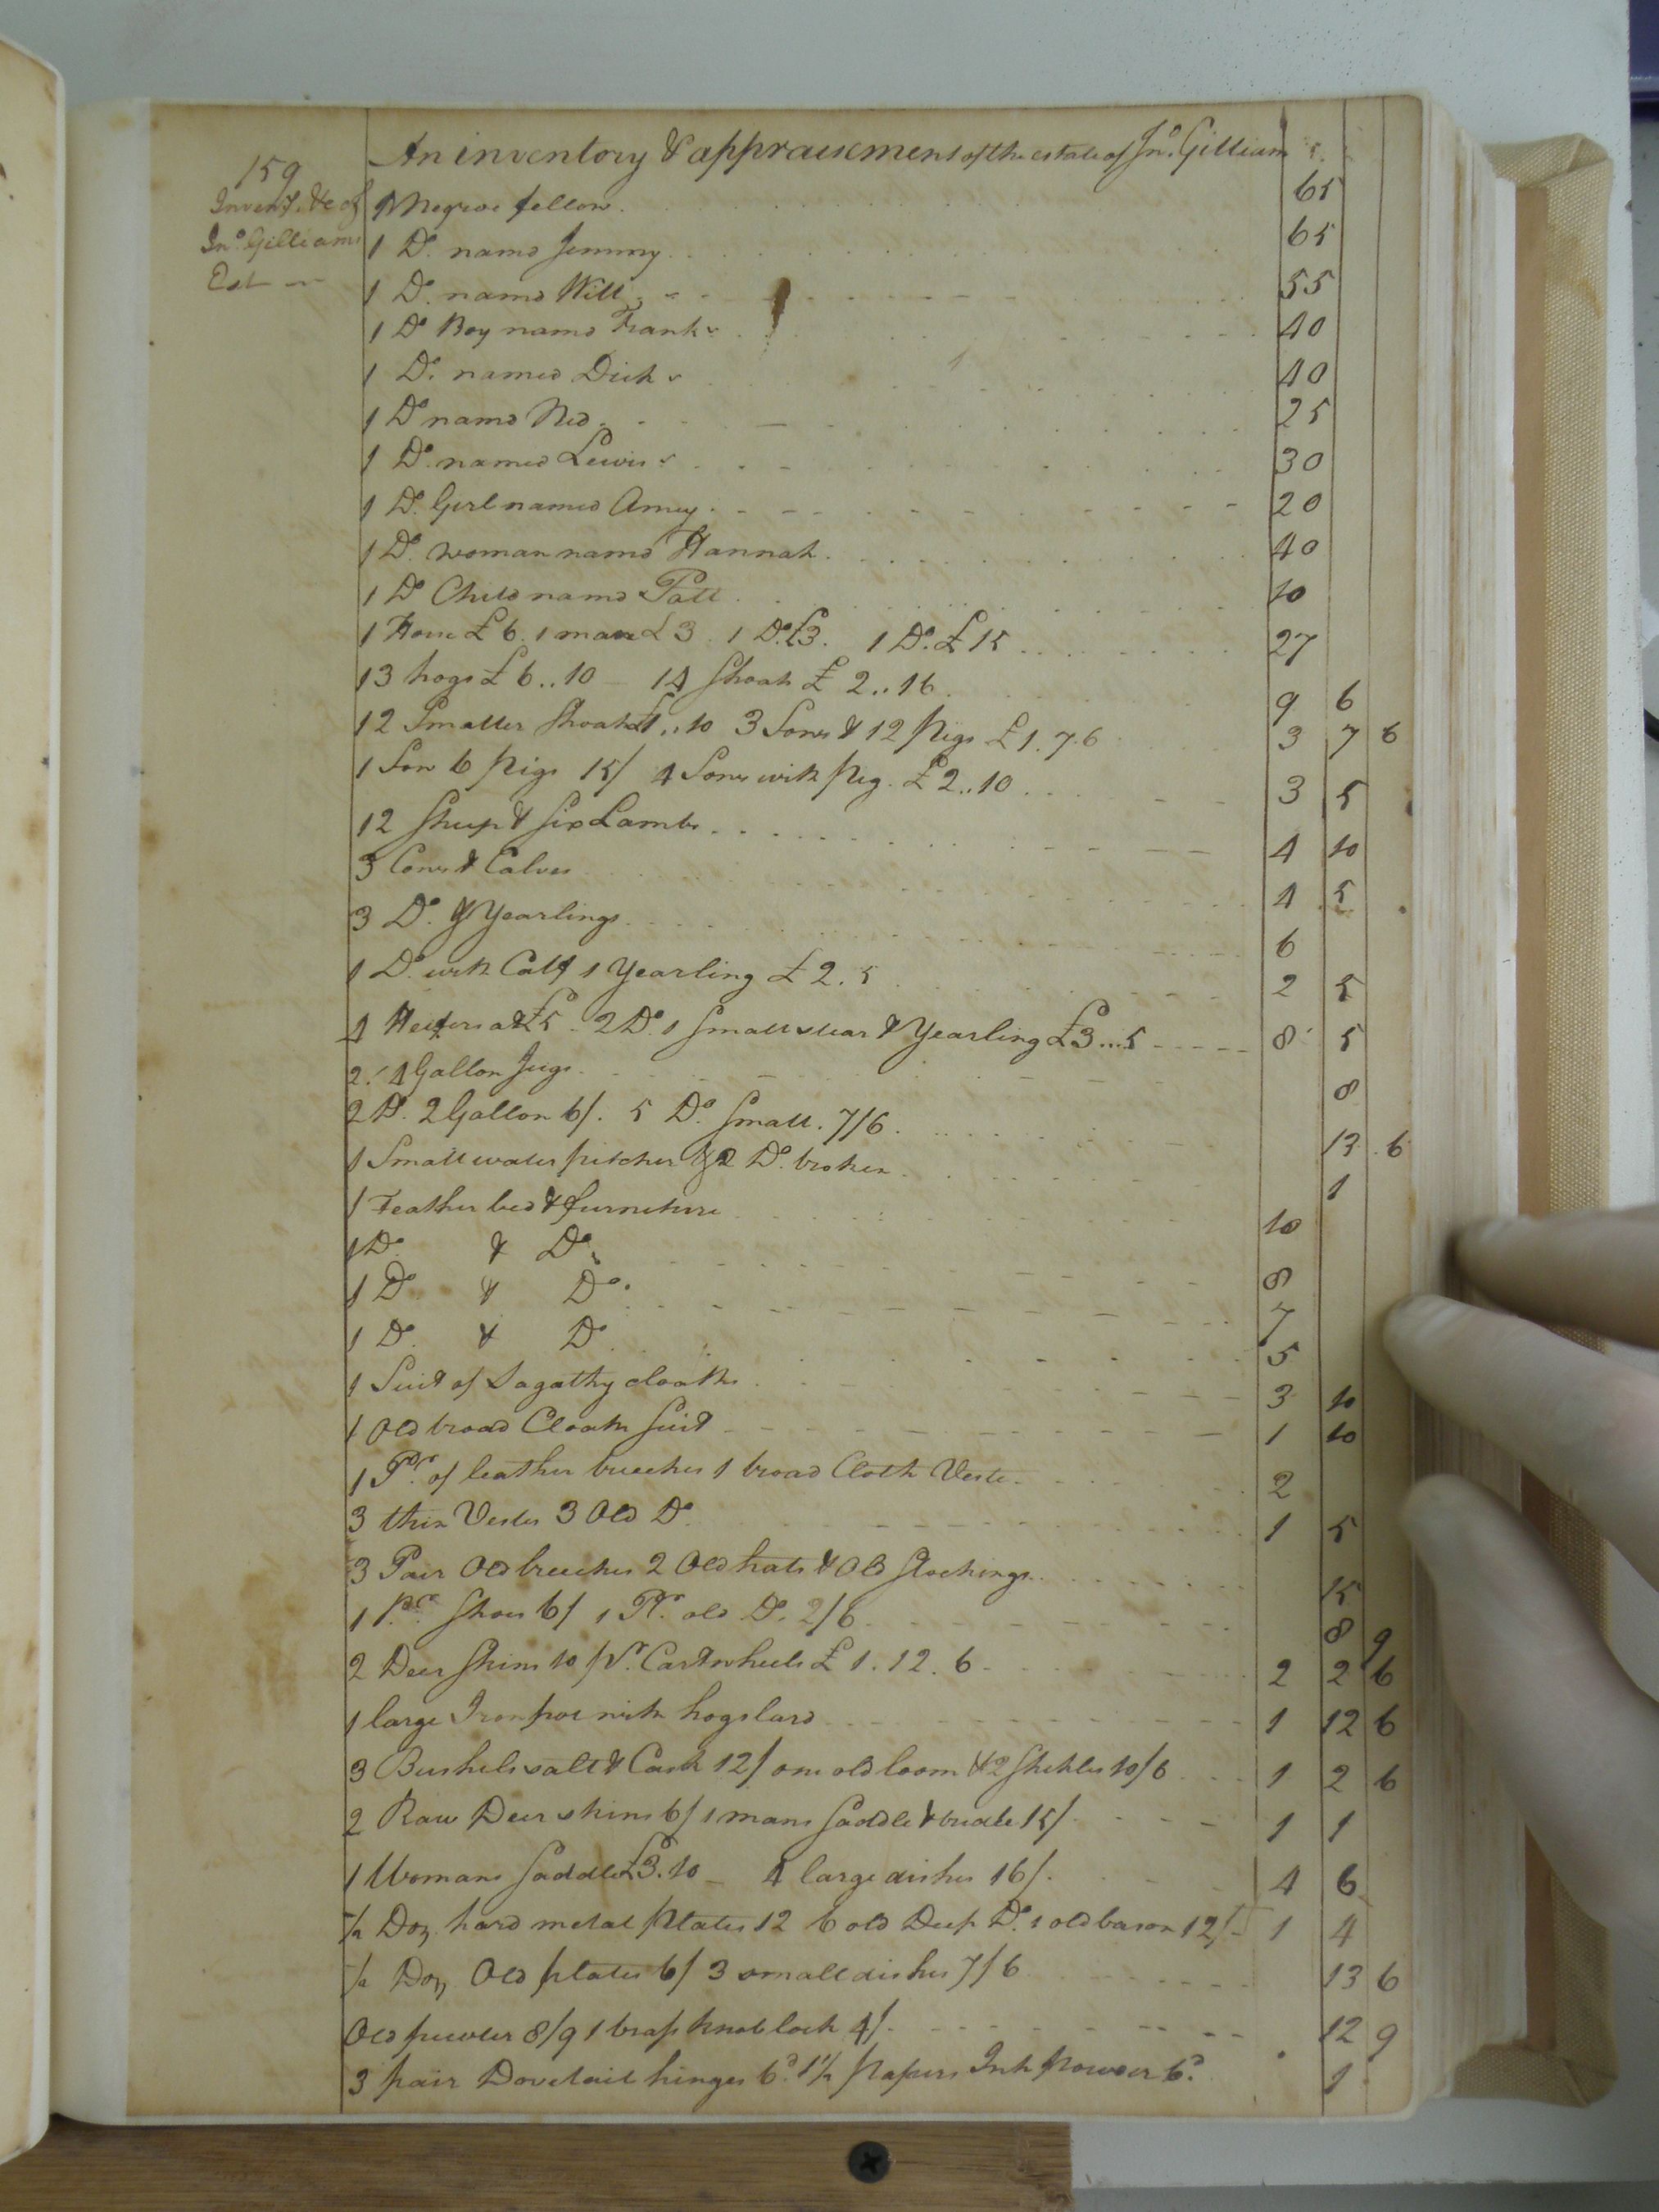 An inventory & appraisement of the estate of Jno. Gilliam
159
Invent. &c of
Jno. Gilliams
Est
1 Negroe fellow. 65
1 Do. namd Jemmy 65
1 Do. namd Will 55
1 Do Boy namd Frank 40
1 Do. named Dick 40
1 Do namd Ned 25
1 Do. named Lewis 30
1 Do. Girl named Amey 20
1 Do. woman namd Hannah 40
1 Do Child namd Patt 10
1 Horse £6. 1 mare £3. 1 Do. £3. 1 Do. £15 27
13 hogs £6..10 14 Shoats £2..16 9 6
12 Smaller Shoats £1..10 3 Sows & 12 Pigs £1.7.6 3 7 6
1 Sow 6 Pigs 15/ 4 Sows with Pig. £2..10 3 5
12 Sheep & Six Lambs 4 10
3 Cows & Calves 4 5
3 Do. & Yearlings 6
1 Do. with Calf 1 Yearling £2.5 2 5
4 Heifers at £5 2 Do. 1 Small stear & Yearling £3...5 8 5
2. 4 Gallon Jugs 8
2 Do. 2 Gallon 6/. 5 Do. Small. 7/6 13 6
1 Small water pitcher & 2 Do. broken 1
1 Feather bed & furneture 10
1 Do. & Do. 8
1 Do. & Do. 7
1 Do. & Do. 5
1 Suit of Sagathy cloaths 3 10
1 Old broad Cloath Suit 1 10
1 Pr. of leather breeches 1 broad Cloth Veste 2
3 thin Vestes 3 Old Do 1 5
3 Pair Old breeches 2 Old hats & Old Stockings 15
1 Pr. Shoes 6/ 1 Pr. old Do. 2/6 8 9
2 Deer Skins 10 / Pr. Cartwheels £1.12.6 2 2 6
1 large Iron pot with hogslard 1 12 6
3 Bushels salt & Cask 12/ one old loom & 2 Shekles 10/6 1 2 6
2 Raw Deer skins 6/ 1 mans Saddle & bridle 15/ 1 1
1 Womans Saddle £3.10 4 large dishes 16/. 4 6
½ Doz. hard metal Plates 12 6 old Deep Do. 1 old bason 12/ 1 4
½ Doz Old plates 6/ 3 small dishes 7/6 13 6
Old pewter 8/9 1 brass knob lock 4/ 12 9
3 pair Dovetail hinges 6d. 1½ Papers Ink Powder 6d. 1